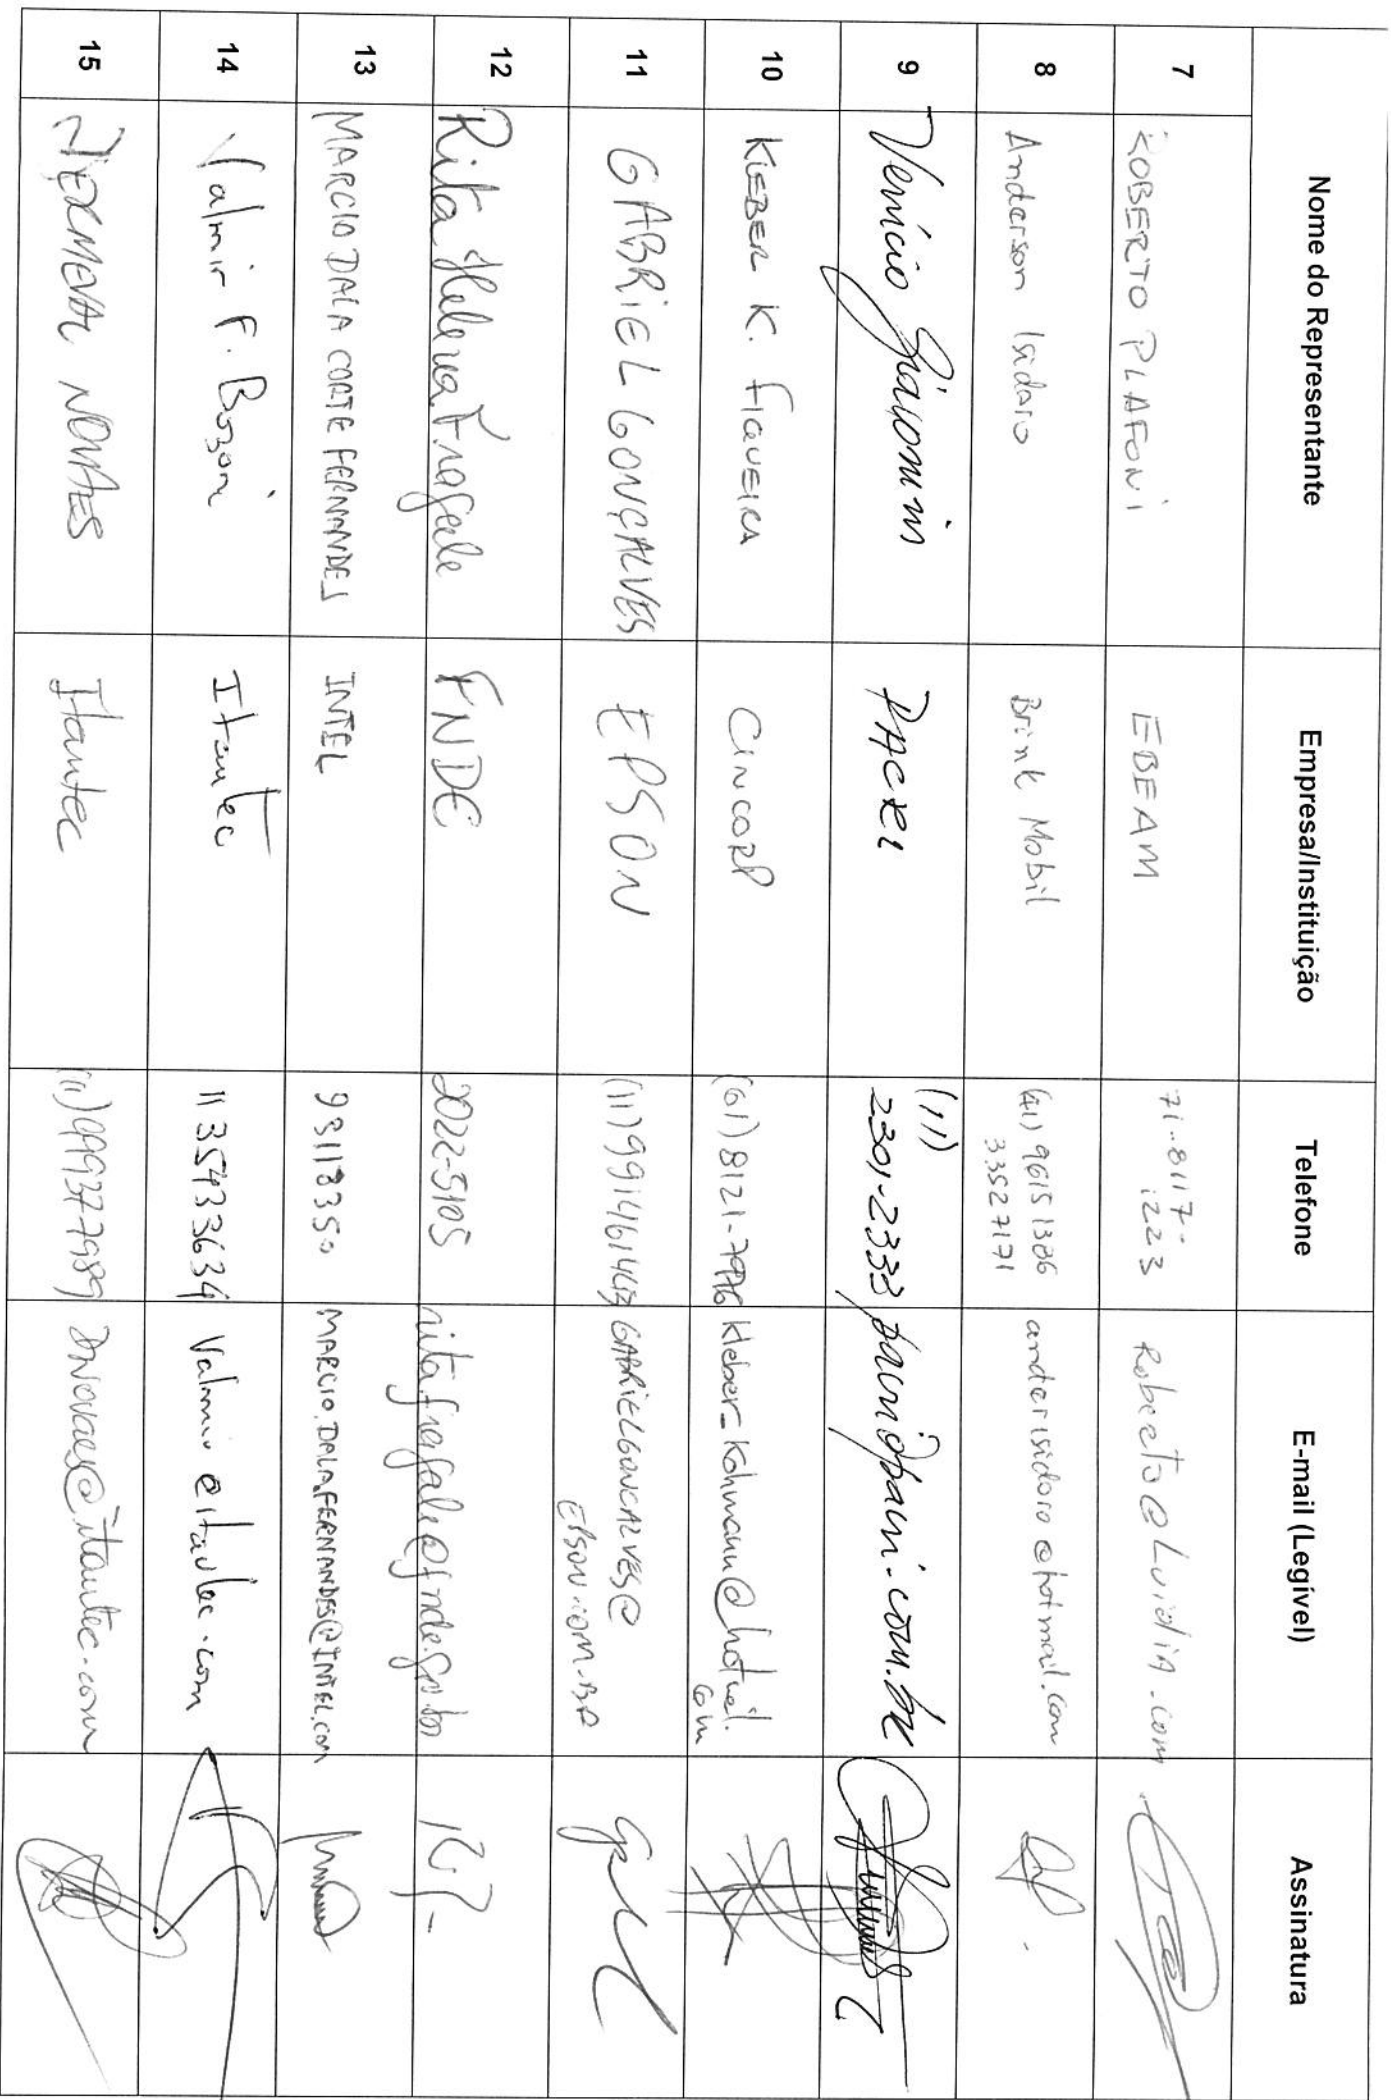 Nome do Representante Empresa/Instituição Telefone E-mail (Legível) Assinatura
7 ROBERTO PLAFONI EBEAM 71-8117-
1223 Roberto@Luidia.com
8 Anderson Isidoro Brink Mobil (41) 96151386
33527171 anderisidoro@hotmail.com
9 Venicio Giacomini (11)
2301-2333
10 KLEBER K. FIGUEIRA CINCORP (61) 8121- kleber_kohmann@hotmail.
com
11 GABRIEL GONÇALVES EPSON GABRIELGONCALVES@
EPSON.COM.BR
12 Rita Helena Fragale FNDE 2022-5105 rita.fragale@fnde.gov.br
13 MARCIO DALA CORTE FERNANDES INTEL MARCIO.DALA.FERNANDES@INTEL.COM
14 Valmir F. Bozoni Itautec 11 35433634 Valmir@itautec.com
15 DERMEVAL NOVAES Itautec (11) 999377989 DNovaes@itautec.com